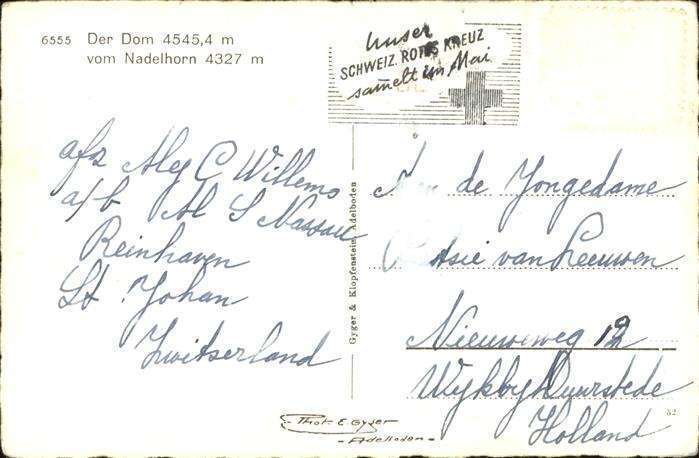 6555 Der Dom 4545,4 m
vom Nadelhorn 4327 m
Unser
SCHWEIZ. ROTES KREUZ
sammelt im Mai
afz Aleg C Willems
a/b M S Nassau
Reinhaven
St Johan
Zwitserland
Gyger & Klopfenstein, Adelboden
de Jongedame
van Leeuwen
Nieuweweg 12
Wijk bij Duurstede
Holland
52
Phot. E. Gyger
- Adelboden -